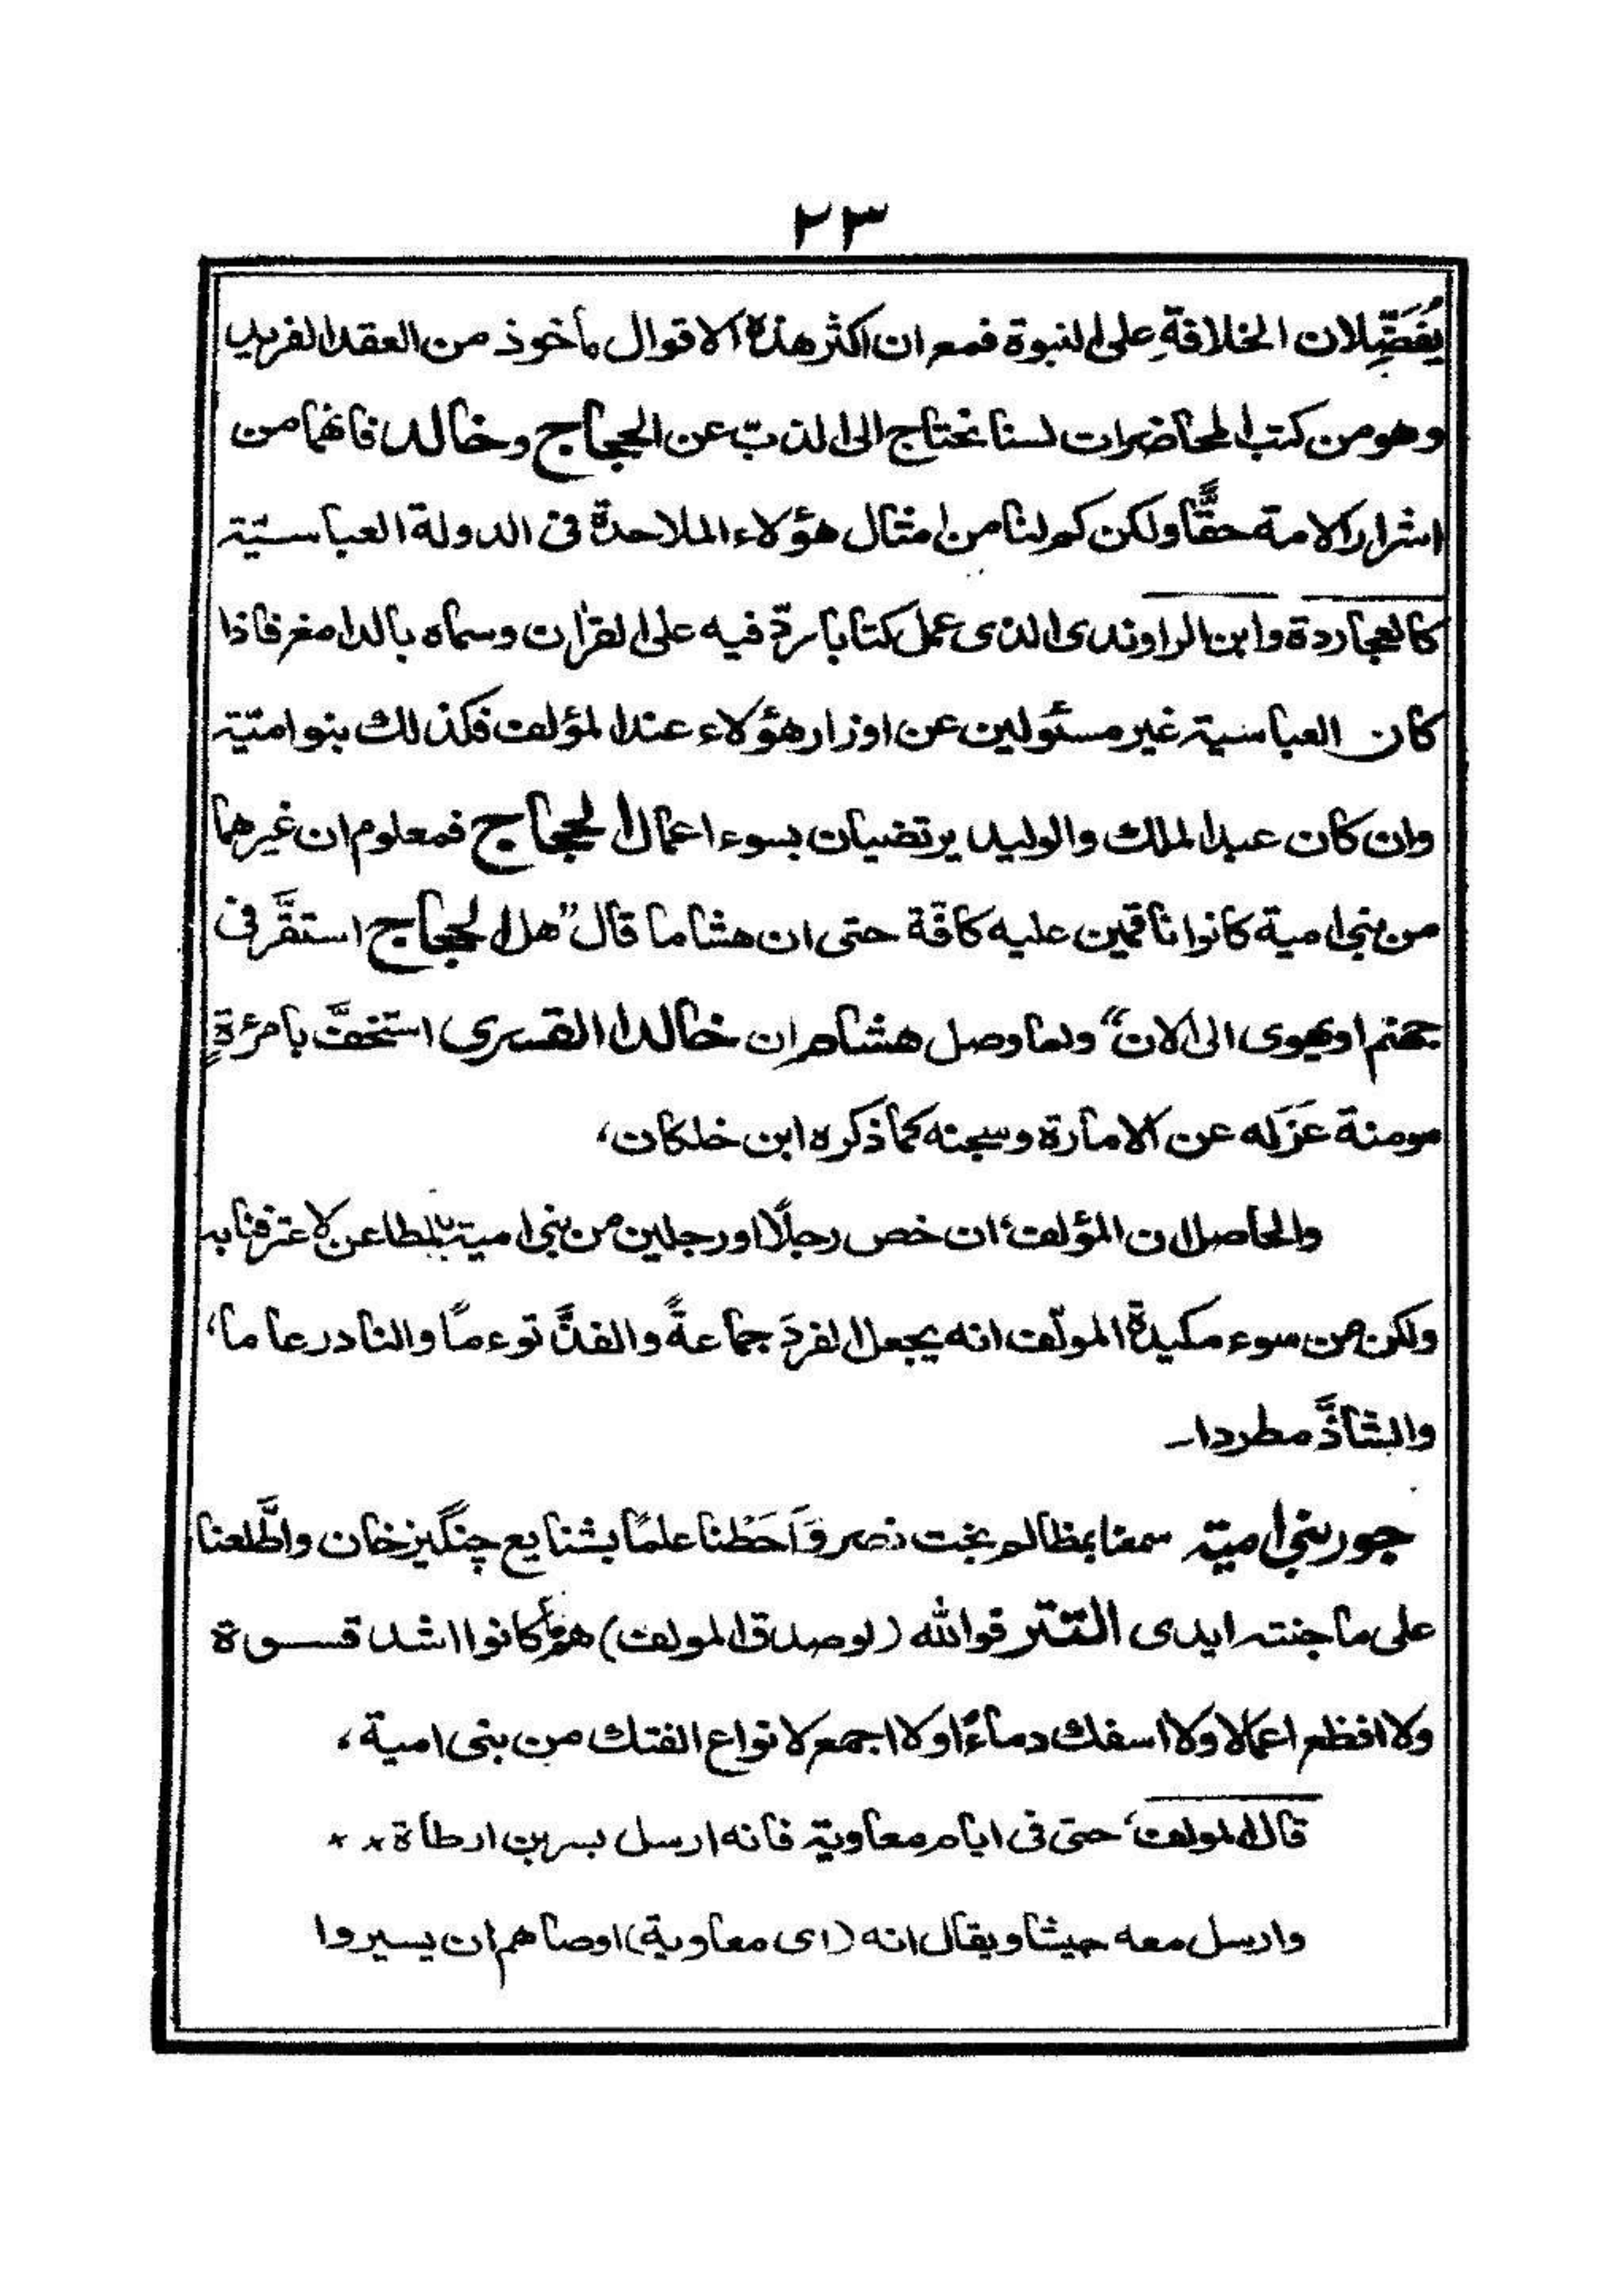 ٢٣
يُفَضِّلان الخلافةِ على النبوة فمع ان اكثر هذه الاقوال مأخوذ من العقد الفريد
وهو من كتب المحاضرات لسنا نحتاج الى الذبّ عن الحجاج وخالد فانهما من
اشرار الامة حقًّا ولكن كم لنا من امثال هؤلاء الملاحدة فى الدولة العباسيّة
كالعجاردة وابن الراوندى الذى عمل كتابا ردّ فيه على القرٰان وسماه بالدامغ فاذا
كان العباسية غير مسئولين عن اوزار هؤلاء عند المؤلف فكذلك بنو اميّة
وان كان عبد الملك والوليد يرتضيان بسوء اعمال الحجاج فمعلوم ان غيرهما
من بنى امية كانوا ناقمين عليه كافّة حتى ان هشاما قال "هل الحجاج استقَّر فى
جهنم او يهوى الى الان" ولما وصل هشام ان خالدا القسرى استخفَّ بامرءةٍ
مومنة عَزَله عن الامارة وسجنه كما ذكره ابن خلكان،
والحاصل ان المؤلف، ان خص رجلًا او رجلين من بنى امية بالمطاعن لاعترفنا به
ولكن من سوء مكيدة المولّف انه يجعل الفردَ جماعةً والفذَّ توءمًا والنادر عاما،
والشاذَّ مطردا۔
جور بنى امية سمعنا بمظالم بخت نصر وَاَحَطْنا علمًا بشنايع چنگيز خان واطَّلعنا
على ما جنته ايدى التتر فوالله (لو صدق المولف) ما كانوا اشد قسوة
ولا افظع اعمالا ولا اسفك دماءً ولا اجمع لانواع الفتك من بنى امية،
قال المولف، حتى فى ايام معاوية فانه ارسل بسر بن ارطاة × ×
وارسل معه جيشا ويقال انه (اى معاوية) اوصاهم ان يسيروا